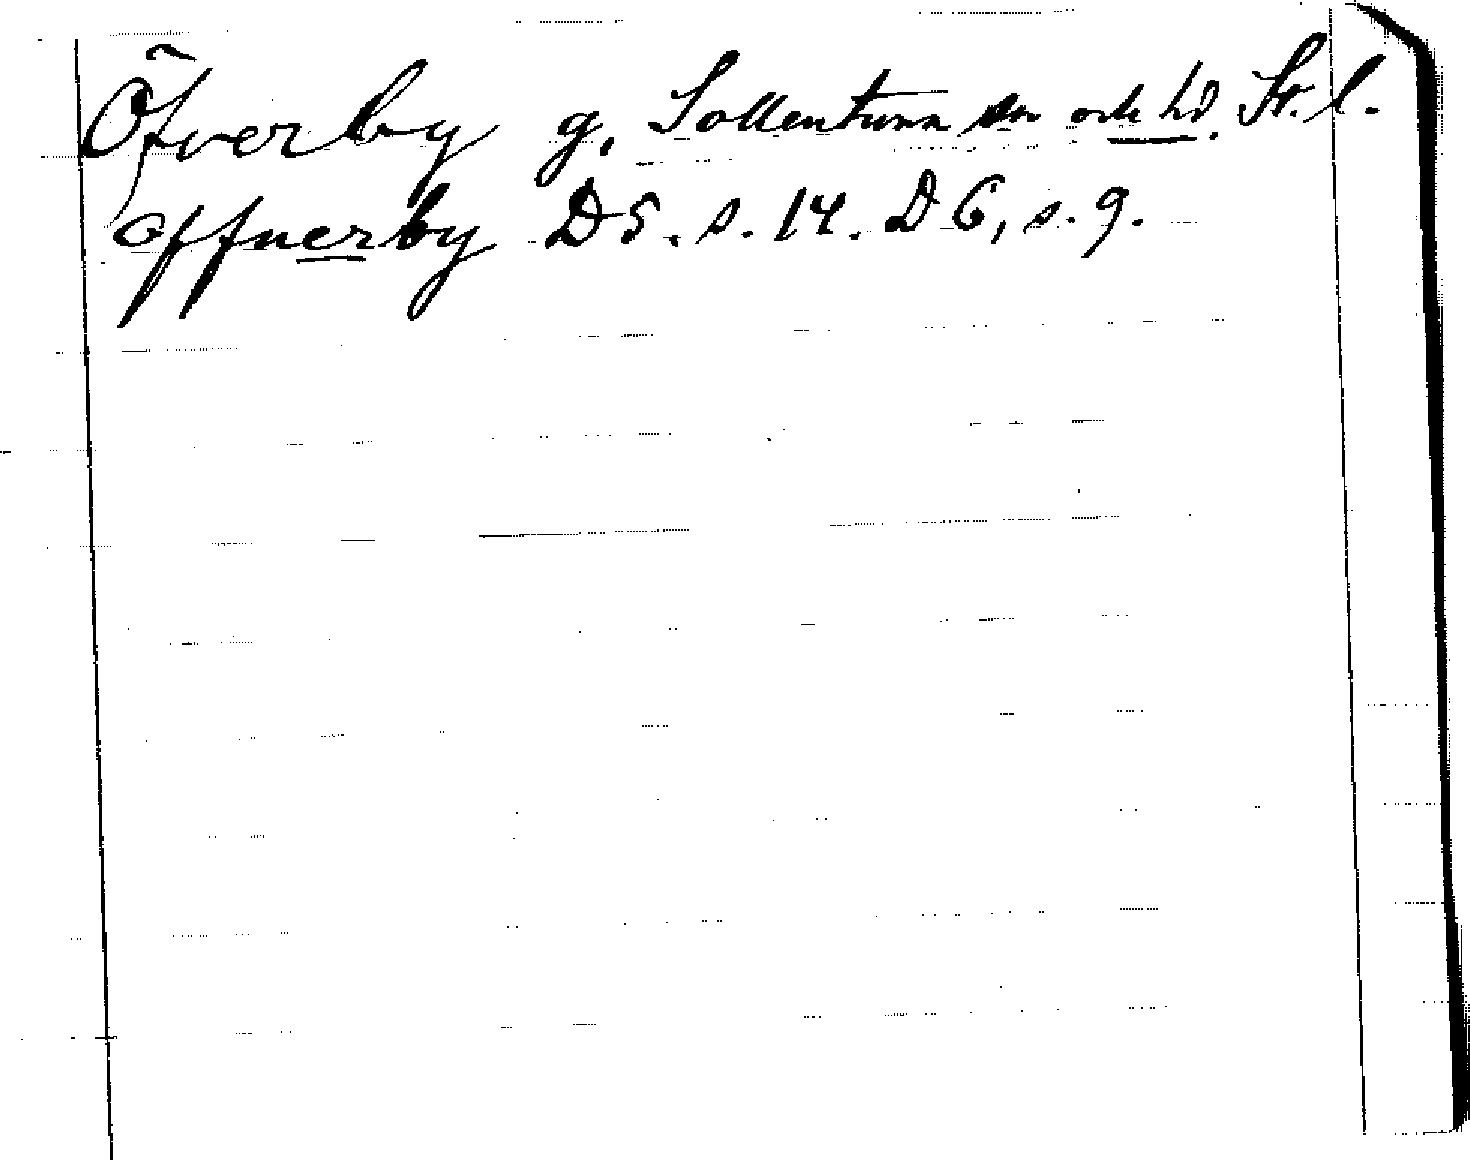 Öfverby g, Sollentuna sn och hd. St. l.
offuerby D5. s. 14. D 6, s. 9.